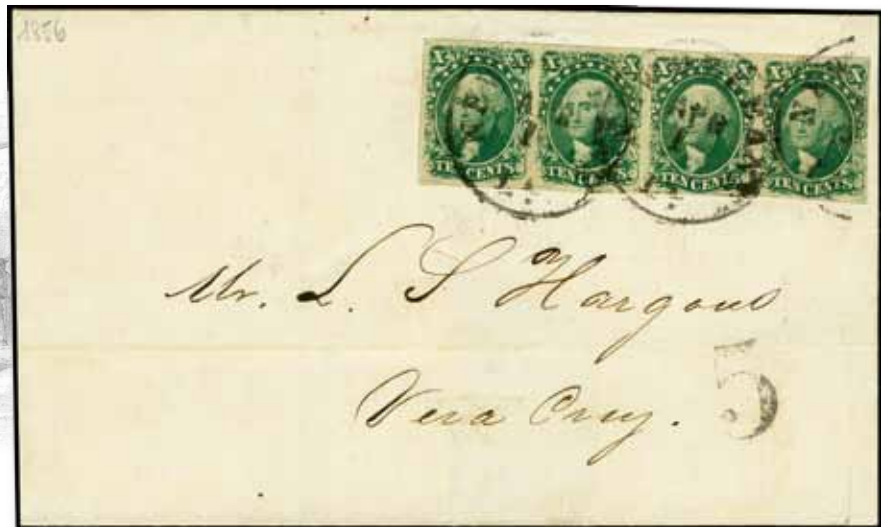 1856
X X X X X X X X
TEN CENTS. TEN CENTS. TEN CENTS. TEN CENTS.
Mr. L. S Hargous
Vera Cruz.
5